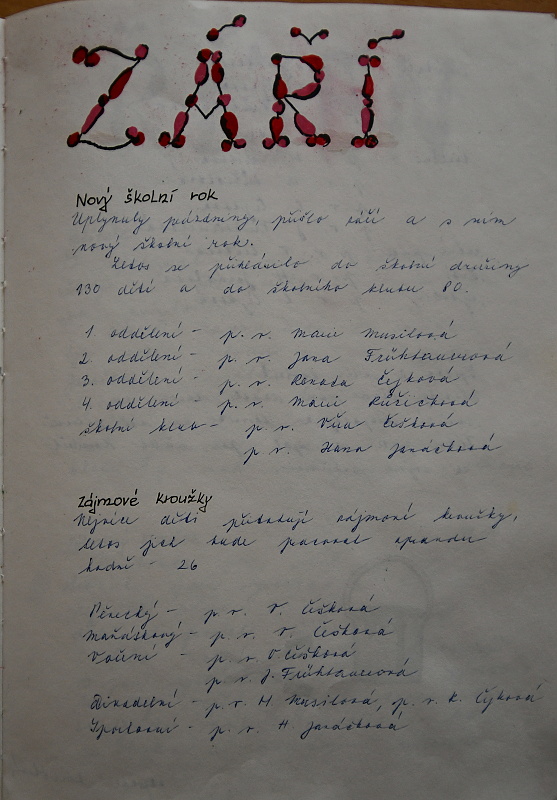 ZÁŘÍ
Nový školní rok
Uplynuly prázdniny, přišlo září a s ním
nový školní rok.
Letos se přihlásilo do školní družiny
130 dětí a do školního klubu 80.
1. oddělení - p. v. Marie Musilová
2. oddělení - p. v. Jana Frühbauerová
3. oddělení - p. v. Renata Čejková
4. oddělení - p. v. Marie Růžičková
školní klub - p. v. Věra Češková
p. v. Hana Janáčková
Zájmové kroužky
Nejvíce dětí přitahují zájmové kroužky,
letos jich bude pracovat opravdu
hodně - 26
Pěvecký - p. v. V. Češková
Maňáskový - p. v. V. Češková
Vaření - p. v. V Češková
p. v. J. Frühbauerová
Divadelní - p. v. M. Musilová, p. v. R. Čejková
Sportovní - p. v. H Janáčková